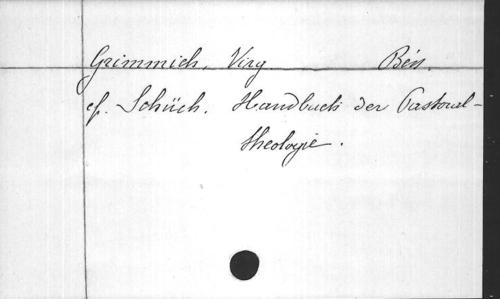 Grimmich, Virg Bén.
cf. Schüch. Handbuch der Pastoral-
theologie.